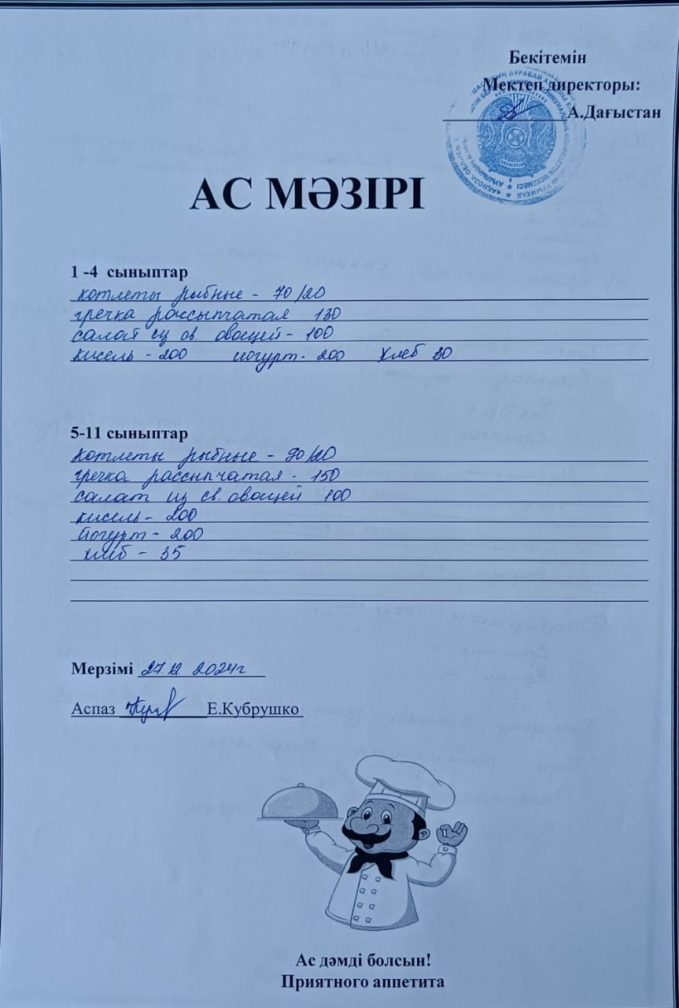 Бекітемін
Мектеп директоры:
А.Дағыстан
АС МӘЗІРІ
1 -4 сыныптар
котлеты рыбные - 70/20
гречка рассыпчатая 130
салат из св овощей - 100
кисель - 200 йогурт - 200 хлеб 30
5-11 сыныптар
котлеты рыбные - 90/20
гречка рассыпчатая - 150
салат из св. овощей 100
кисель - 200
йогурт - 200
хлеб - 35
Мерзімі 27 12 2024г
Аспаз Е.Кубрушко
Ас дәмді болсын!
Приятного аппетита